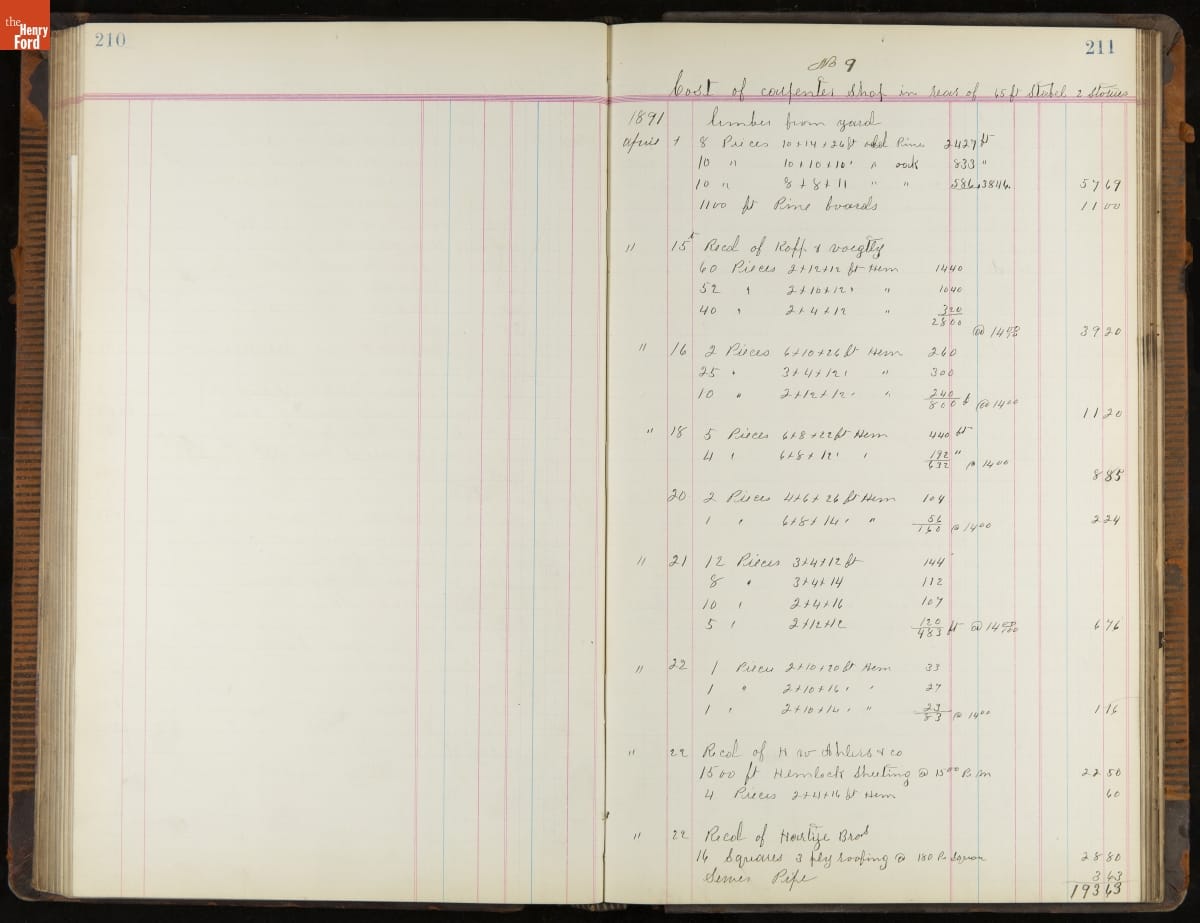 the
Henry
Ford
210
211
No 9
Cost of carpenter shop in rear of 65 ft Stabel 2 Stories
1891 lumber from yard
April 8 Pieces 10+14+26 ft Pine 2427 ft
10 " 10+10+10 " oak 833 "
10 " 8+8+11 " " 586 3846 57 69
1100 ft Pine boards 11 00
" 15 Recd of Kopp & Voegtly
60 Pieces 2+12+12 ft Hem 1440
52 " 2+10+12 " " 1040
40 " 2+4+12 " 320
2800 @ 14 00 39 20
" 16 2 Pieces 6+10+26 ft Hem 260
25 " 3+4+12 " " 300
10 " 2+12+12 " " 240
800 ft @ 14 00 11 20
" 18 5 Pieces 6+8+22 ft Hem 440 ft
4 " 6+8+12 " " 192 "
632 @ 14 00 8 85
20 2 Pieces 4+6+26 ft Hem 104
1 " 6+8+14 " " 56
160 @ 14 00 2 24
" 21 12 Pieces 3+4+12 ft 144
8 " 3+4+14 112
10 " 2+4+16 107
5 " 2+12+12 120
483 ft @ 14 00/100 6 76
" 22 1 Piece 2+10+20 ft Hem 33
1 " 2+10+16 " " 27
1 " 2+10+14 " " 23
83 @ 14 00 1 16
" 22 Recd of H W Ahlers & co
1500 ft Hemlock Sheeting @ 15 00 Pr m 22 50
4 Pieces 2+4+16 ft Hem 60
" 22 Recd of Bros
16 Squares 3 ply roofing @ 180 Pr Square 28 80
Sewer Pipe 3 63
193 63